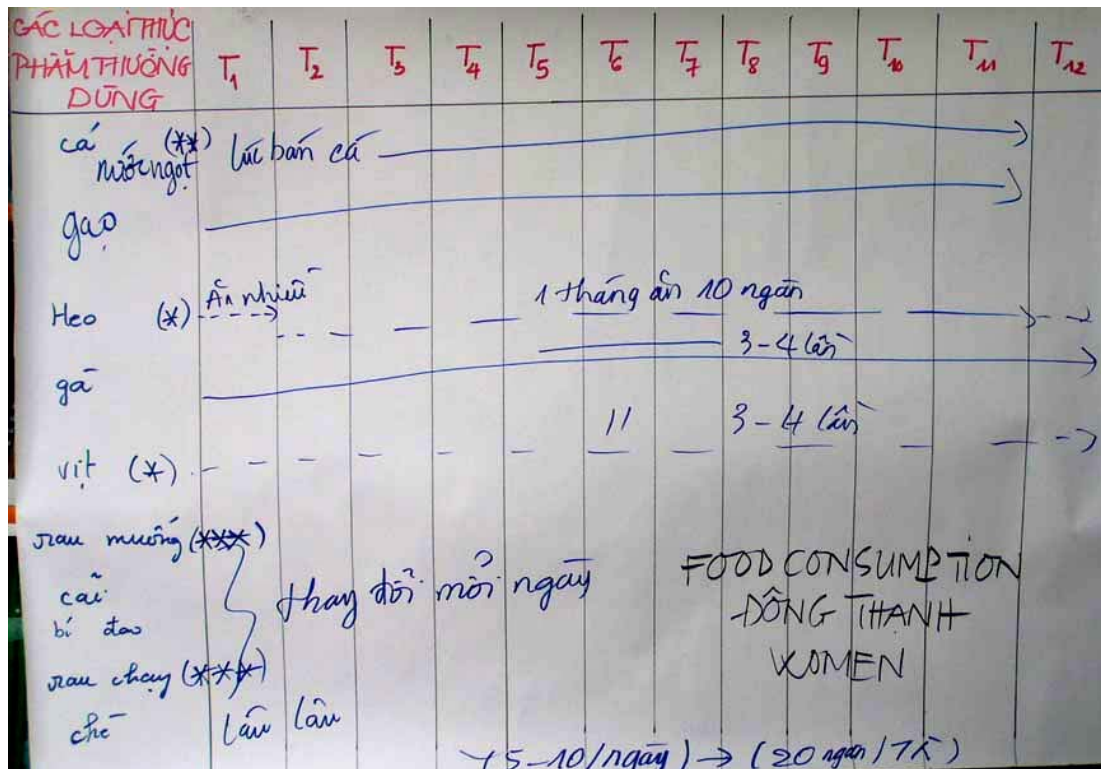 CÁC LOẠI THỨC
PHẨM THƯỜNG
DÙNG
T1 T2 T3 T4 T5 T6 T7 T8 T9 T10 T11 T12
cá (**)
nước ngọt lúc bán cá
gạo
Heo (*) Ăn nhiều 1 tháng ăn 10 ngàn
3-4 lần
gà
11 3-4 lần
vịt (*)
rau muống (***)
cải thay đổi mỗi ngày
bí đao
rau chạy (***)
chè lâu lâu
FOOD CONSUMPTION
ĐÔNG THẠNH
WOMEN
(5-10/ngày) → (20 ngàn/